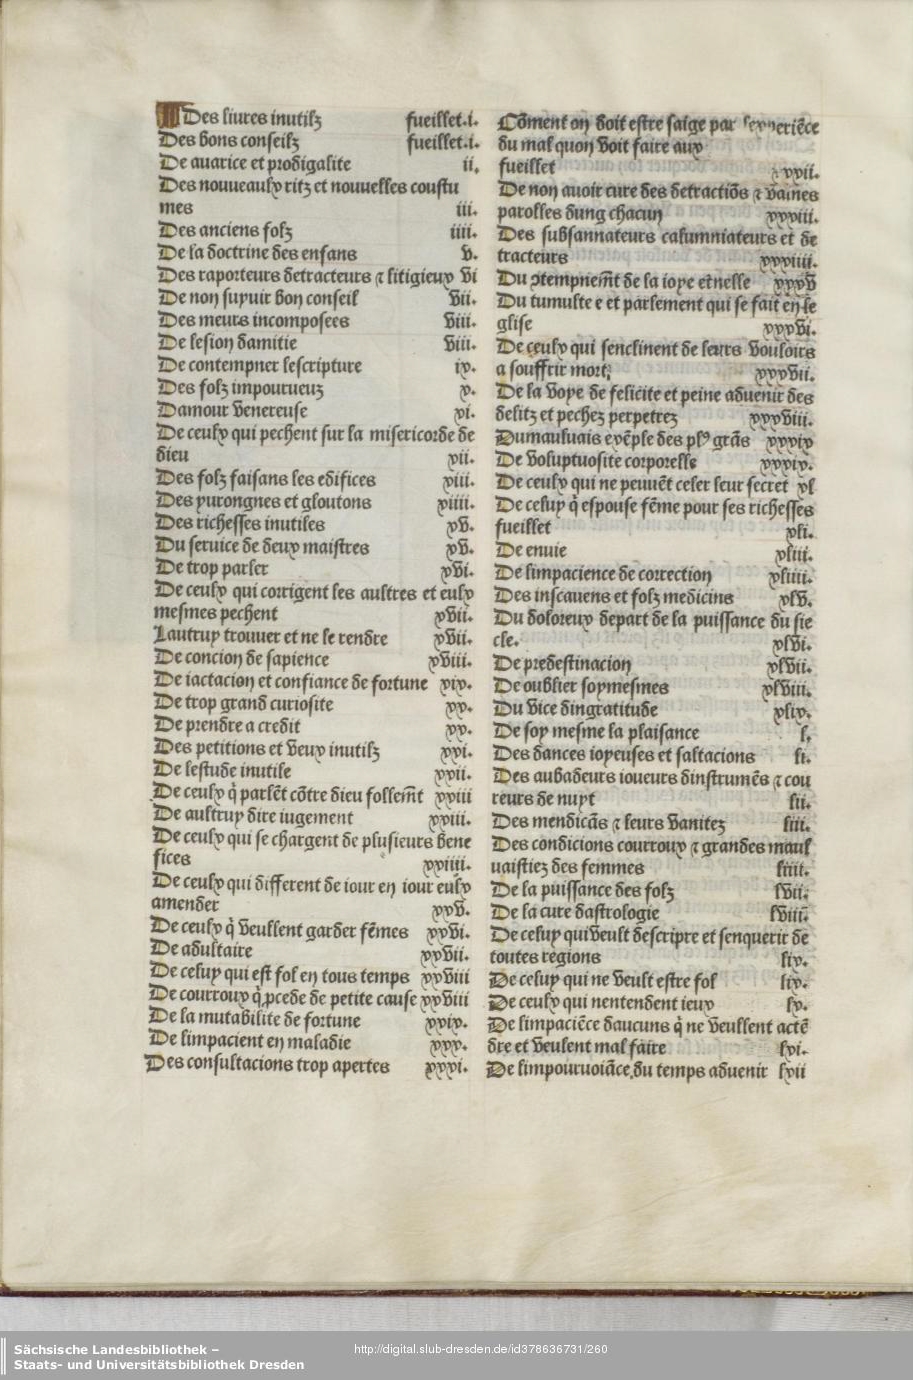 Des liures inutilz fueillet.i.
Des bons conseilz fueillet.i.
De auarice et prodigalite ii.
Des nouueaulx ritz et nouuelles coustu
mes iii.
Des anciens folz iiii.
De la doctrine des enfans v.
Des raporteurs detracteurs ⁊ litigieux vi
De non suyuir bon conseil vii.
Des meurs incomposees viii.
De lesion damitie viii.
De contempner lescripture ix.
Des folz impourueuz x.
Damour venereuse xi.
De ceulx qui pechent sur la misericorde de
dieu xii.
Des folz faisans les edifices xiii.
Des yurongnes et gloutons xiiii.
Des richesses inutiles xv.
Du seruice de deux maistres xv.
De trop parler xvi.
De ceulx qui corrigent les aultres et eulx
mesmes pechent xvii.
Lautruy trouuer et ne le rendre xvii.
De concion de sapience xviii.
De iactacion et confiance de fortune xix.
De trop grand curiosite xx.
De prendre a credit xx.
Des petitions et veux inutilz xxi.
De lestude inutile xxii.
De ceulx q̇ parlēt cōtre dieu follem̄t xxiii
De aultruy dire iugement xxiii.
De ceulx qui se chargent de plusieurs bene
fices xxiiii.
De ceulx qui different de iour en iour eulx
amender xxv.
De ceulx q̇ veullent garder fēmes xxvi.
De adultaire xxvii.
De celuy qui est fol en tous temps xxviii
De courroux q̇ ꝓcede de petite cause xxviii
De la mutabilite de fortune xxix.
De limpacient en maladie xxx.
Des consultacions trop apertes xxxi.
Cōment on doit estre saige par lexperiēce
du mal quon voit faire aux
fueillet xxxii.
De non auoir cure des detractiōs ⁊ vaines
parolles dung chacun xxxiii.
Des subsannateurs calumniateurs et de
tracteurs xxxiiii.
Du ꝯtempnem̄t de la ioye eternelle xxxv
Du tumulte e et parlement qui se fait en le
glise xxxvi.
De ceulx qui senclinent de leurs vouloirs
a souffrir mort. xxxvii.
De la voye de felicite et peine aduenir des
delitz et pechez perpetrez xxxviii.
Dumauluais exēple des plꝰ grās xxxix
De voluptuosite corporelle xxxix.
De ceulx qui ne peuuēt celer leur secret xl
De celuy q̇ espouse fēme pour ses richesses
fueillet xli.
De enuie xliii.
De limpacience de correction xliiii.
Des inscauens et folz medicins xlv.
Du doloreux depart de la puissance du sie
cle. xlvi.
De predestinacion xlvii.
De oublier soymesmes xlviii.
Du vice dingratitude xlix.
De soy mesme la plaisance l.
Des dances ioyeuses et saltacions li.
Des aubadeurs ioueurs dinstrumēs ⁊ cou
reurs de nuyt lii.
Des mendicās ⁊ leurs vanitez liii.
Des condicions courroux ⁊ grandes maul
uaistiez des femmes liiii.
De la puissance des folz lvii.
De la cure dastrologie lviii.
De celuy quiveult descripre et senquerir de
toutes regions lix.
De celuy qui ne veult estre fol lix.
De ceulx qui nentendent ieux lx.
De limpaciēce daucuns q̇ ne veullent actē
dre et veulent mal faire lxi.
De limpouruoiāce du temps aduenir lxii
Sächsische Landesbibliothek –
Staats- und Universitätsbibliothek Dresden
http://digital.slub-dresden.de/id378636731/260